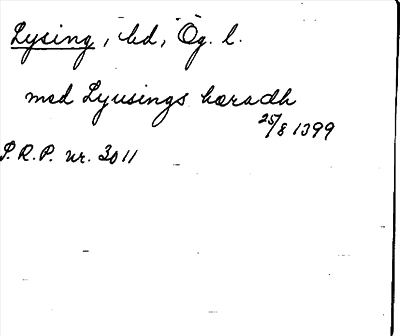 Lysing, hd, Ög. l.
med Lyusings hæradh
25/8 1399
S.R.P. nr. 3011